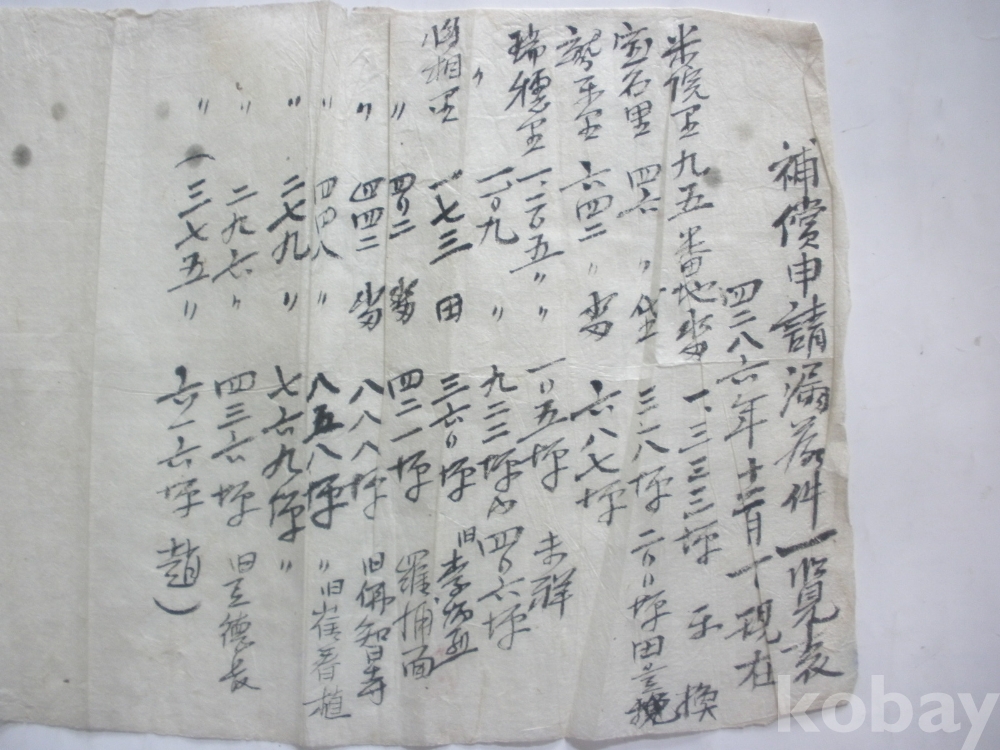 補償申請漏落件一覧表
四二八六年十二月 現在
米院里九五番地畓 一、三三三坪
宝石里 四六 〃 垈 三一八坪 二〇〇坪田 換
鷲 里 六四二 〃 畓 六八七坪
瑞穗里 一、二〇五 〃 一〇五坪 未詳
〃 一〇九 〃 九二二坪 四〇六坪
將相里 一七三 田 三六〇坪 旧李
〃 四〇二 畓 四二一坪 羅捕面
〃 四四二 畓 八八八坪 旧佛智寺
〃 四四八 〃 八五八坪 〃旧崔春植
〃 二七九 〃 七六九坪 〃
〃 二九六 〃 四三六坪 旧 德
〃 (三七五 〃 六一六坪 趙)
kobay